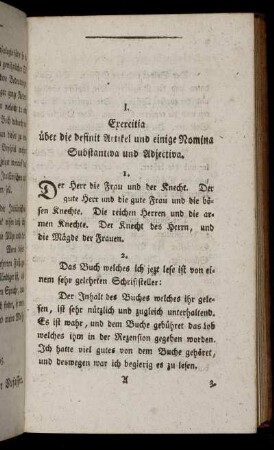 I.
Exercitia
über die definit Artikel und einige Nomina
Substantiva und Adjectiva.
1.
Der Herr die Frau und der Knecht. Der
gute Herr und die gute Frau und die bö-
sen Knechte. Die reichen Herren und die ar-
men Knechte. Der Knecht des Herrn, und
die Mägde der Frauen.
2.
Das Buch welches ich jezt lese ist von ei-
nem sehr gelehrten Schriftsteller:
Der Inhalt des Buches welches ihr gele-
sen, ist sehr nützlich und zugleich unterhaltend.
Es ist wahr, und dem Buche gebühret das Lob
welches ihm in der Rezension gegeben worden.
Ich hatte viel gutes von dem Buche gehöret,
und deswegen war ich begierig es zu lesen.
A
3.